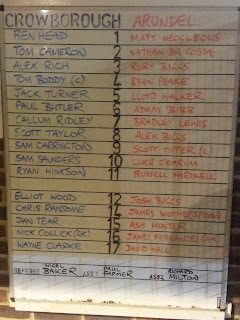 CROWBOROUGH ARUNDEL
REN HEAD 1 MATT NEOLLEOUS
TOM CAMERON 2 NATHAN DA COSTA
ALEX RICH 3 RORY BIGGS
TOM BODDY (C) 4 RYAN PEAKE
JACK TURNER 5 LLOYD WALKER
PAUL BUTLER 6 ADAM BIBB
CALLUM RIDLEY 7 BRADLEY LEWIS
SCOTT TAYLOR 8 ALEX BIGGS
SAM CARRINGTON 9 SCOTT TIPPER (C)
SAM SANDERS 10 LUKE JEARUM
RYAN HINKSON 11 RUSSELL HARDWELL
ELLIOT WOOD 12 JOSH BIGGS
CHRIS RANSOME 14 JAMES WOTHERSPOON
DAN TEAR 15 ASH HUNTER
NICK COLLICK (GK) JAMES FERNANDES (GK)
WAYNE CLARKE 17 DAVID HALL
REFEREE NIGEL BAKER ASS1 PAUL FARMER ASS2 RICHARD MILTON